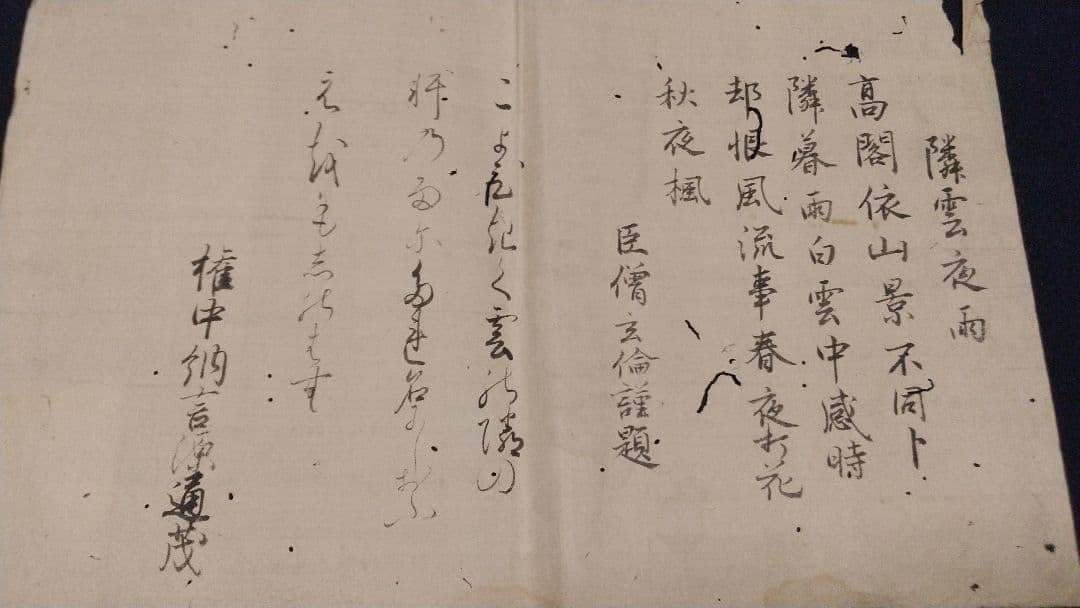 隣雲夜雨
高閣依山景不同卜
隣暮雨白雲中感時
却恨風流事春夜打花
秋夜楓
臣僧玄倫謹題
こよ く雲能隣乃
軒乃雨尓 名にしおふ
も志能はむ
権中納言源通茂